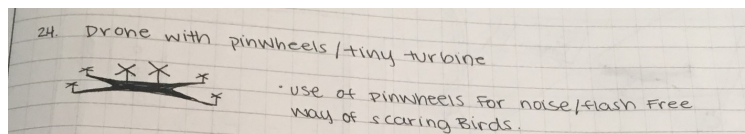 24. Drone with pinwheels / tiny turbine
· use of pinwheels for noise/flash free
way of scaring Birds.